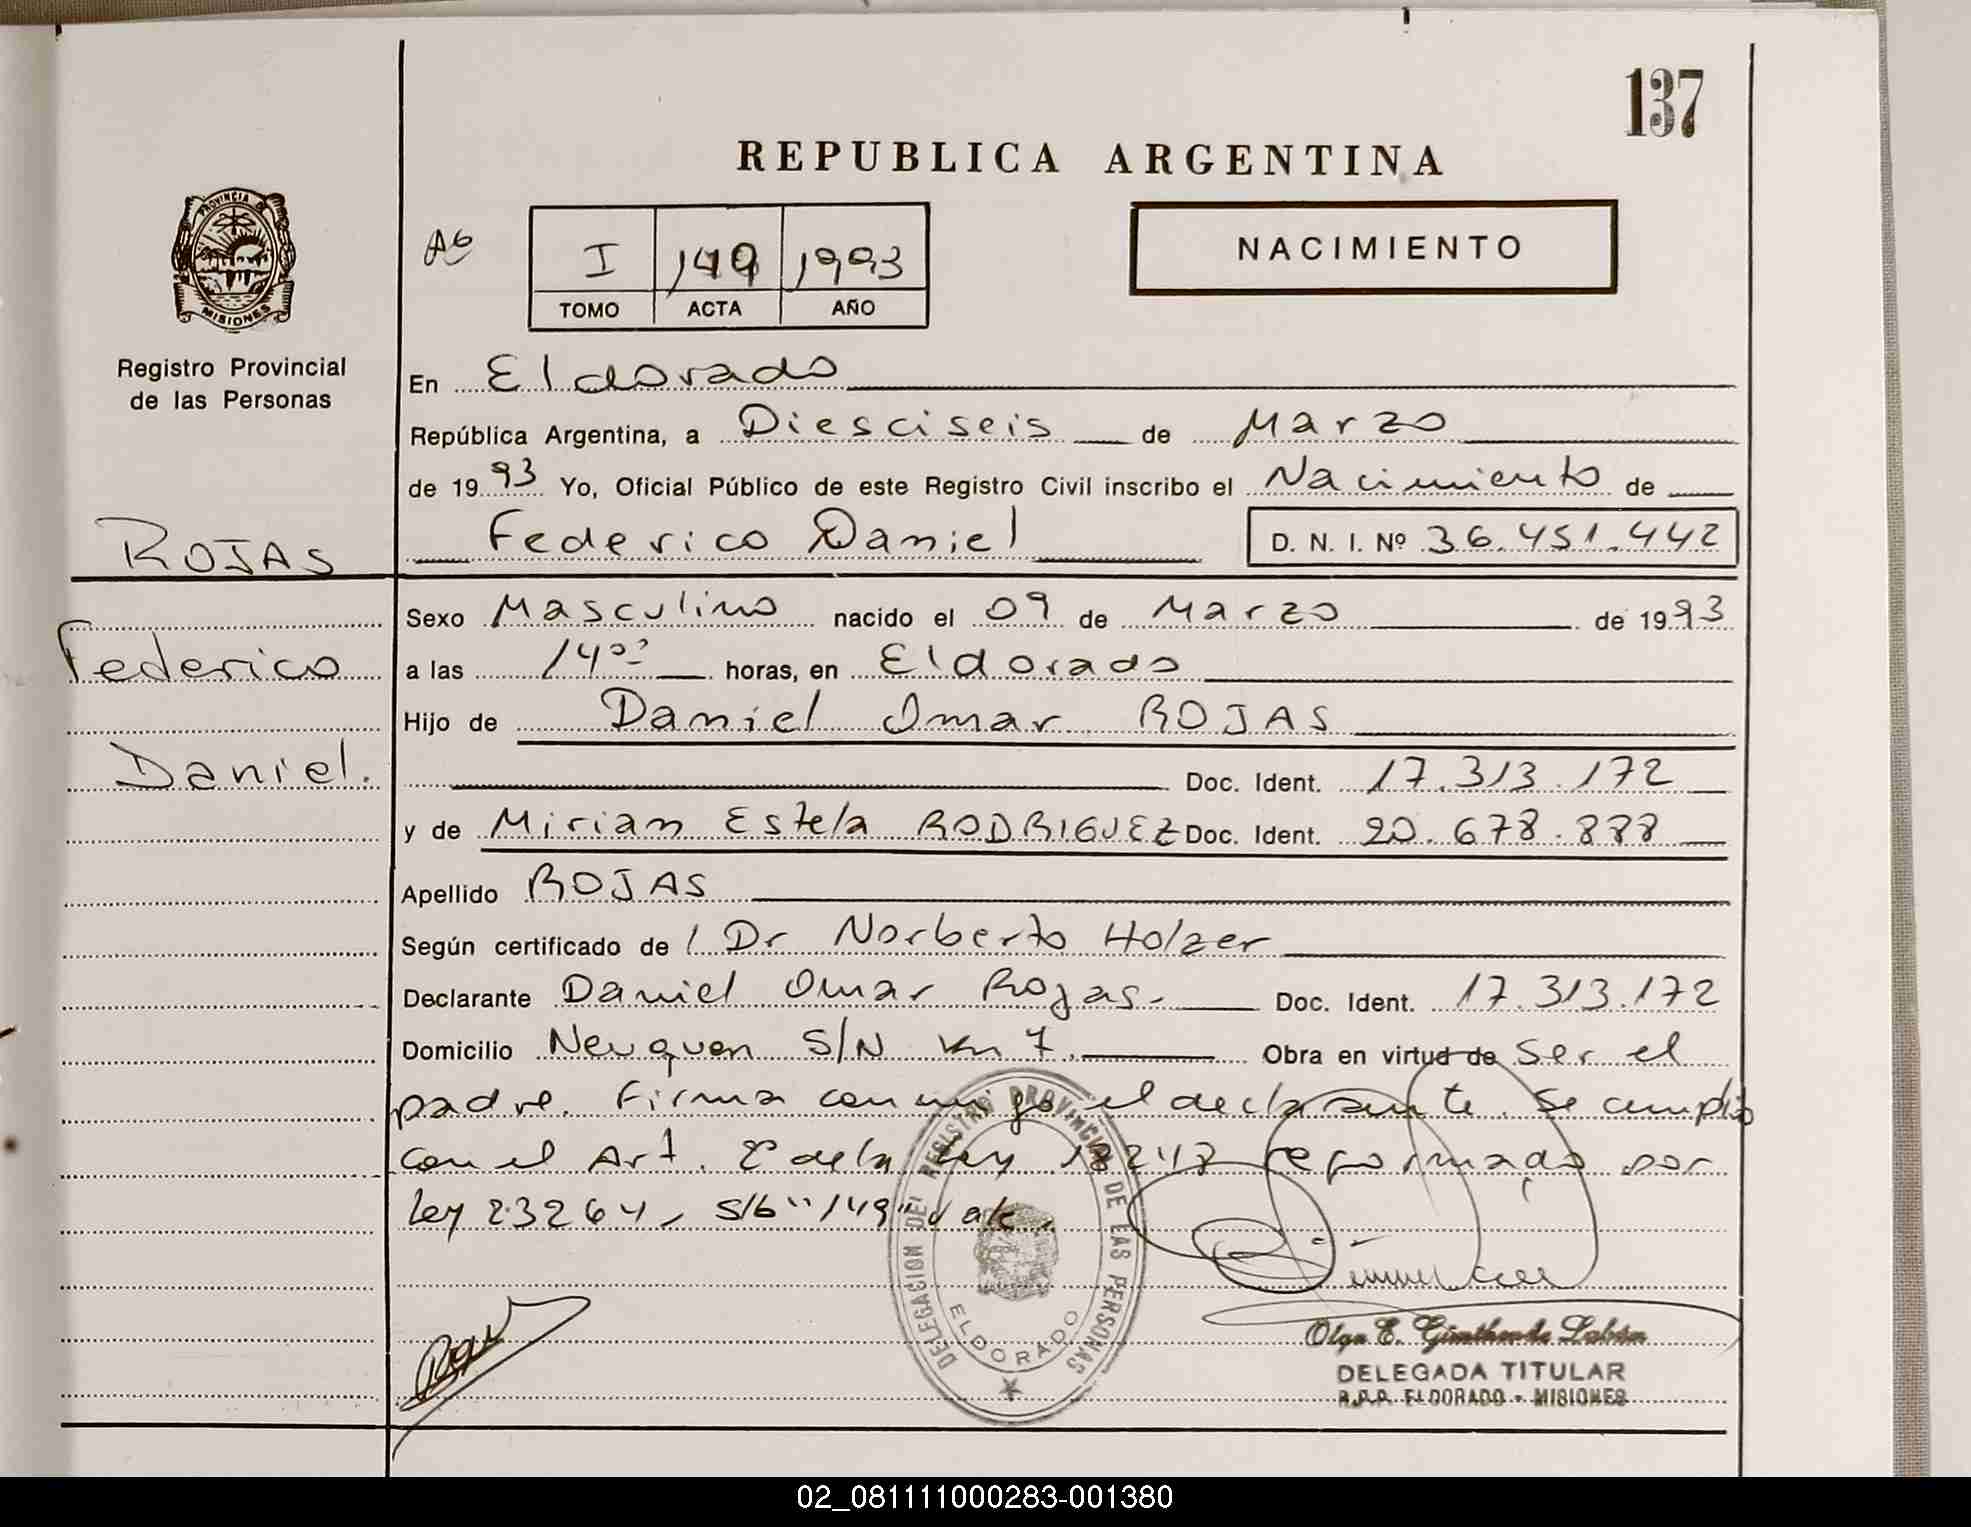 137
REPUBLICA ARGENTINA
PROVINCIA D
MISIONES
Registro Provincial
de las Personas
AG
I 149 1993
TOMO ACTA AÑO
NACIMIENTO
En Eldorado
República Argentina, a Diesciseis de Marzo
de 1993 Yo, Oficial Público de este Registro Civil inscribo el Nacimiento de
Federico Daniel D. N. I. Nº 36.451.442
ROJAS
Federico
Daniel.
Sexo Masculino nacido el 09 de Marzo de 1993
a las 14 horas, en Eldorado
Hijo de Daniel Omar ROJAS
Doc. Ident. 17.313.172
y de Mirian Estela RODRIGUEZ Doc. Ident. 20.678.888
Apellido ROJAS
Según certificado de l Dr Norberto Holzer
Declarante Daniel Omar Rojas.- Doc. Ident. 17.313.172
Domicilio Neuquen S/N Km 7. Obra en virtud de ser el
padre. Firma conmigo el declarante. Se cumplio
con el Art. 2º de la Ley 18247 reformado por
Ley 23264, S/b "149" vale.
DELEGACION DEL REGISTRO PROVINCIAL DE LAS PERSONAS
ELDORADO
Olga E.
DELEGADA TITULAR
R.P.P. ELDORADO - MISIONES
02_081111000283-001380